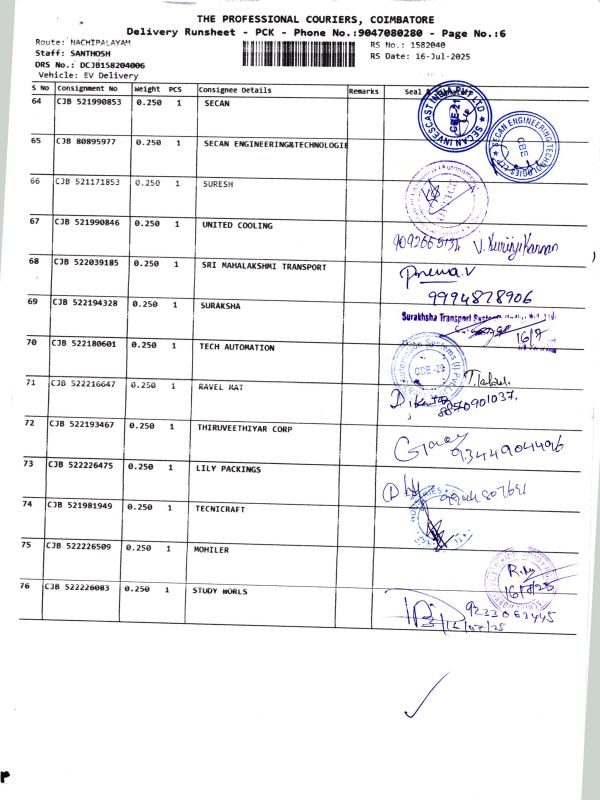 THE PROFESSIONAL COURIERS, COIMBATORE
Delivery Runsheet - PCK - Phone No.:9047080280 - Page No.:6
Route: NACHIPALAYAM RS No.: 1582040
Staff: SANTHOSH RS Date: 16-Jul-2025
DRS No.: DCJB158204006
Vehicle: EV Delivery
S No Consignment No Weight PCS Consignee Details Remarks Seal &
64 CJB 521990853 0.250 1 SECAN
SECAN INVESCAST INDIA PVT LTD
CBE-21
65 CJB 80895977 0.250 1 SECAN ENGINEERING&TECHNOLOGIE
SECAN ENGINEERING TECHNOLOGIES LLP
CBE
66 CJB 521171853 0.250 1 SURESH
67 CJB 521990846 0.250 1 UNITED COOLING
68 CJB 522039185 0.250 1 SRI MAHALAKSHMI TRANSPORT
9994878906
69 CJB 522194328 0.250 1 SURAKSHA
Surakhsha Transport
16/7
70 CJB 522180601 0.250 1 TECH AUTOMATION
71 CJB 522216647 0.250 1 RAVEL MAT
8870901037.
72 CJB 522193467 0.250 1 THIRUVEETHIYAR CORP
9344904496
73 CJB 522226475 0.250 1 LILY PACKINGS
9944807691
74 CJB 521981949 0.250 1 TECNICRAFT
75 CJB 522226509 0.250 1 MOHILER
76 CJB 522226083 0.250 1 STUDY WORLS
9233063445